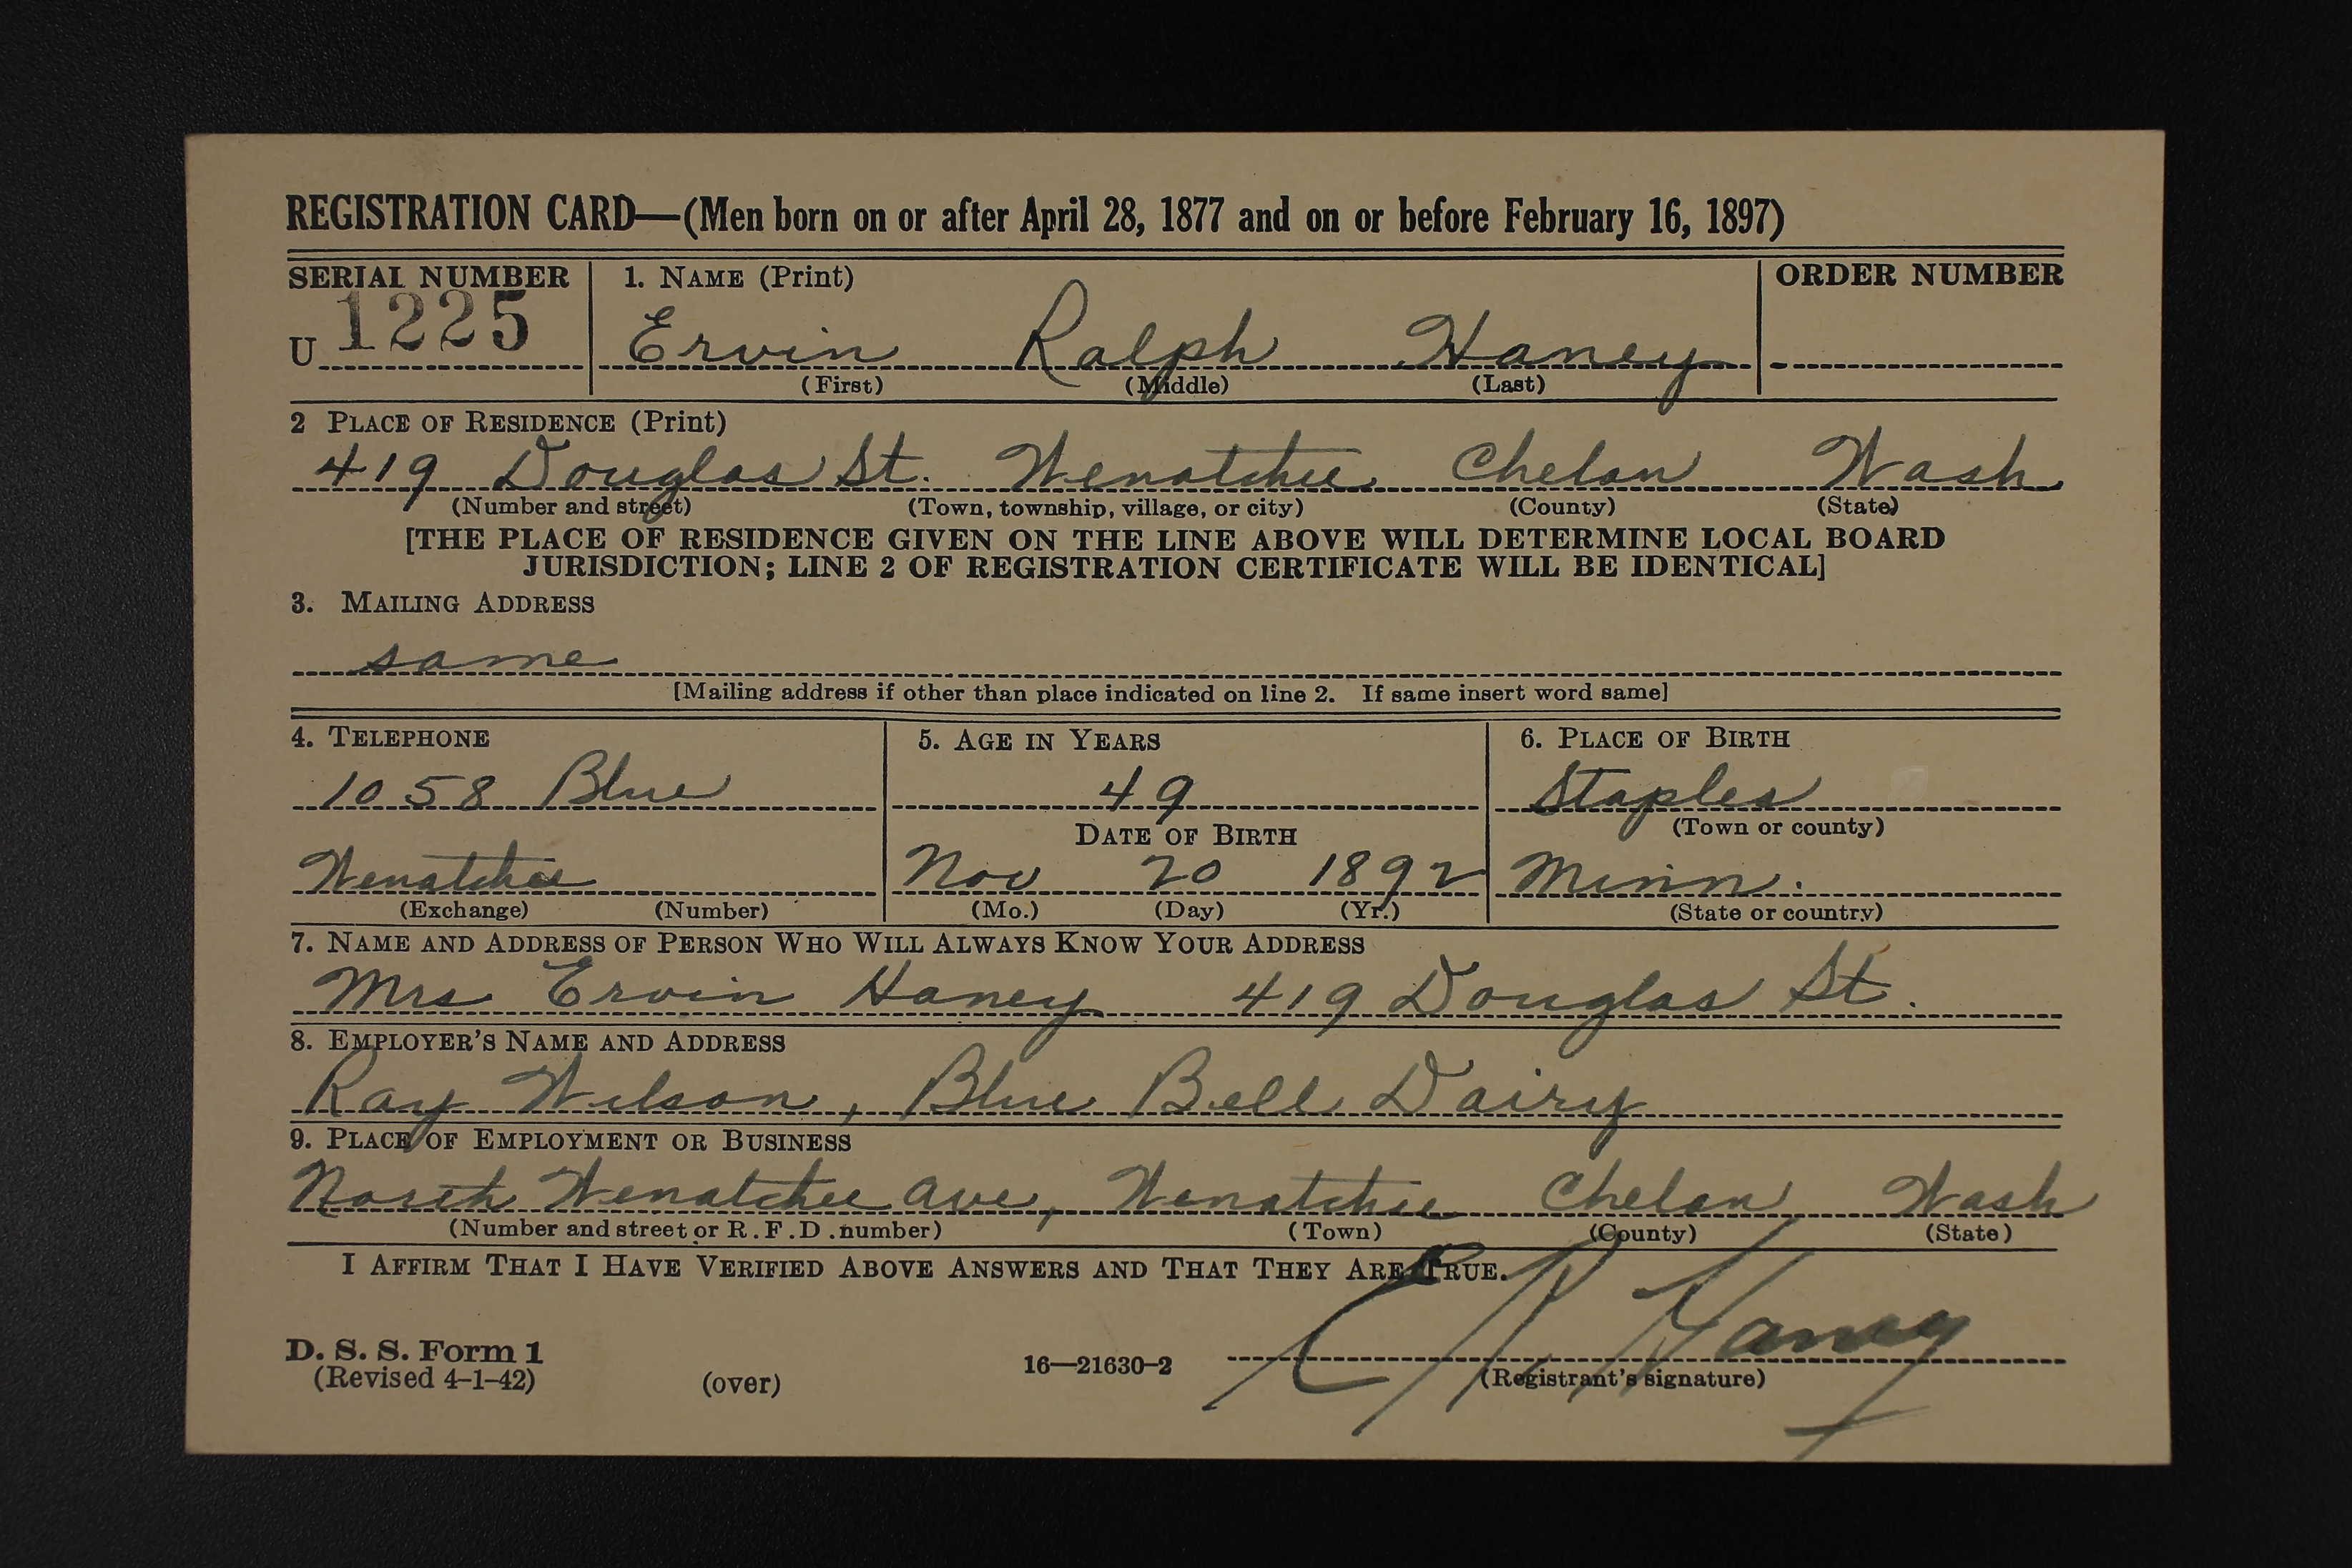 REGISTRATION CARD—(Men born on or after April 28, 1877 and on or before February 16, 1897)
SERIAL NUMBER 1. NAME (Print) ORDER NUMBER
U 1225 Ervin Ralph Haney
(First) (Middle) (Last)
2 PLACE OF RESIDENCE (Print)
419 Douglas St. Wenatchee Chelan Wash.
(Number and street) (Town, township, village, or city) (County) (State)
[THE PLACE OF RESIDENCE GIVEN ON THE LINE ABOVE WILL DETERMINE LOCAL BOARD
JURISDICTION; LINE 2 OF REGISTRATION CERTIFICATE WILL BE IDENTICAL]
3. MAILING ADDRESS
same
[Mailing address if other than place indicated on line 2. If same insert word same]
4. TELEPHONE 5. AGE IN YEARS 6. PLACE OF BIRTH
1058 Blue 49 Staples
DATE OF BIRTH (Town or county)
Wenatchee Nov 20 1892 Minn.
(Exchange) (Number) (Mo.) (Day) (Yr.) (State or country)
7. NAME AND ADDRESS OF PERSON WHO WILL ALWAYS KNOW YOUR ADDRESS
Mrs Ervin Haney 419 Douglas St.
8. EMPLOYER'S NAME AND ADDRESS
Ray Wilson, Blue Bell Dairy
9. PLACE OF EMPLOYMENT OR BUSINESS
North Wenatchee Ave, Wenatchee Chelan Wash
(Number and street or R.F.D. number) (Town) (County) (State)
I AFFIRM THAT I HAVE VERIFIED ABOVE ANSWERS AND THAT THEY ARE TRUE.
E R Haney
D. S. S. Form 1
(Revised 4-1-42) (over) 16—21630-2 (Registrant's signature)